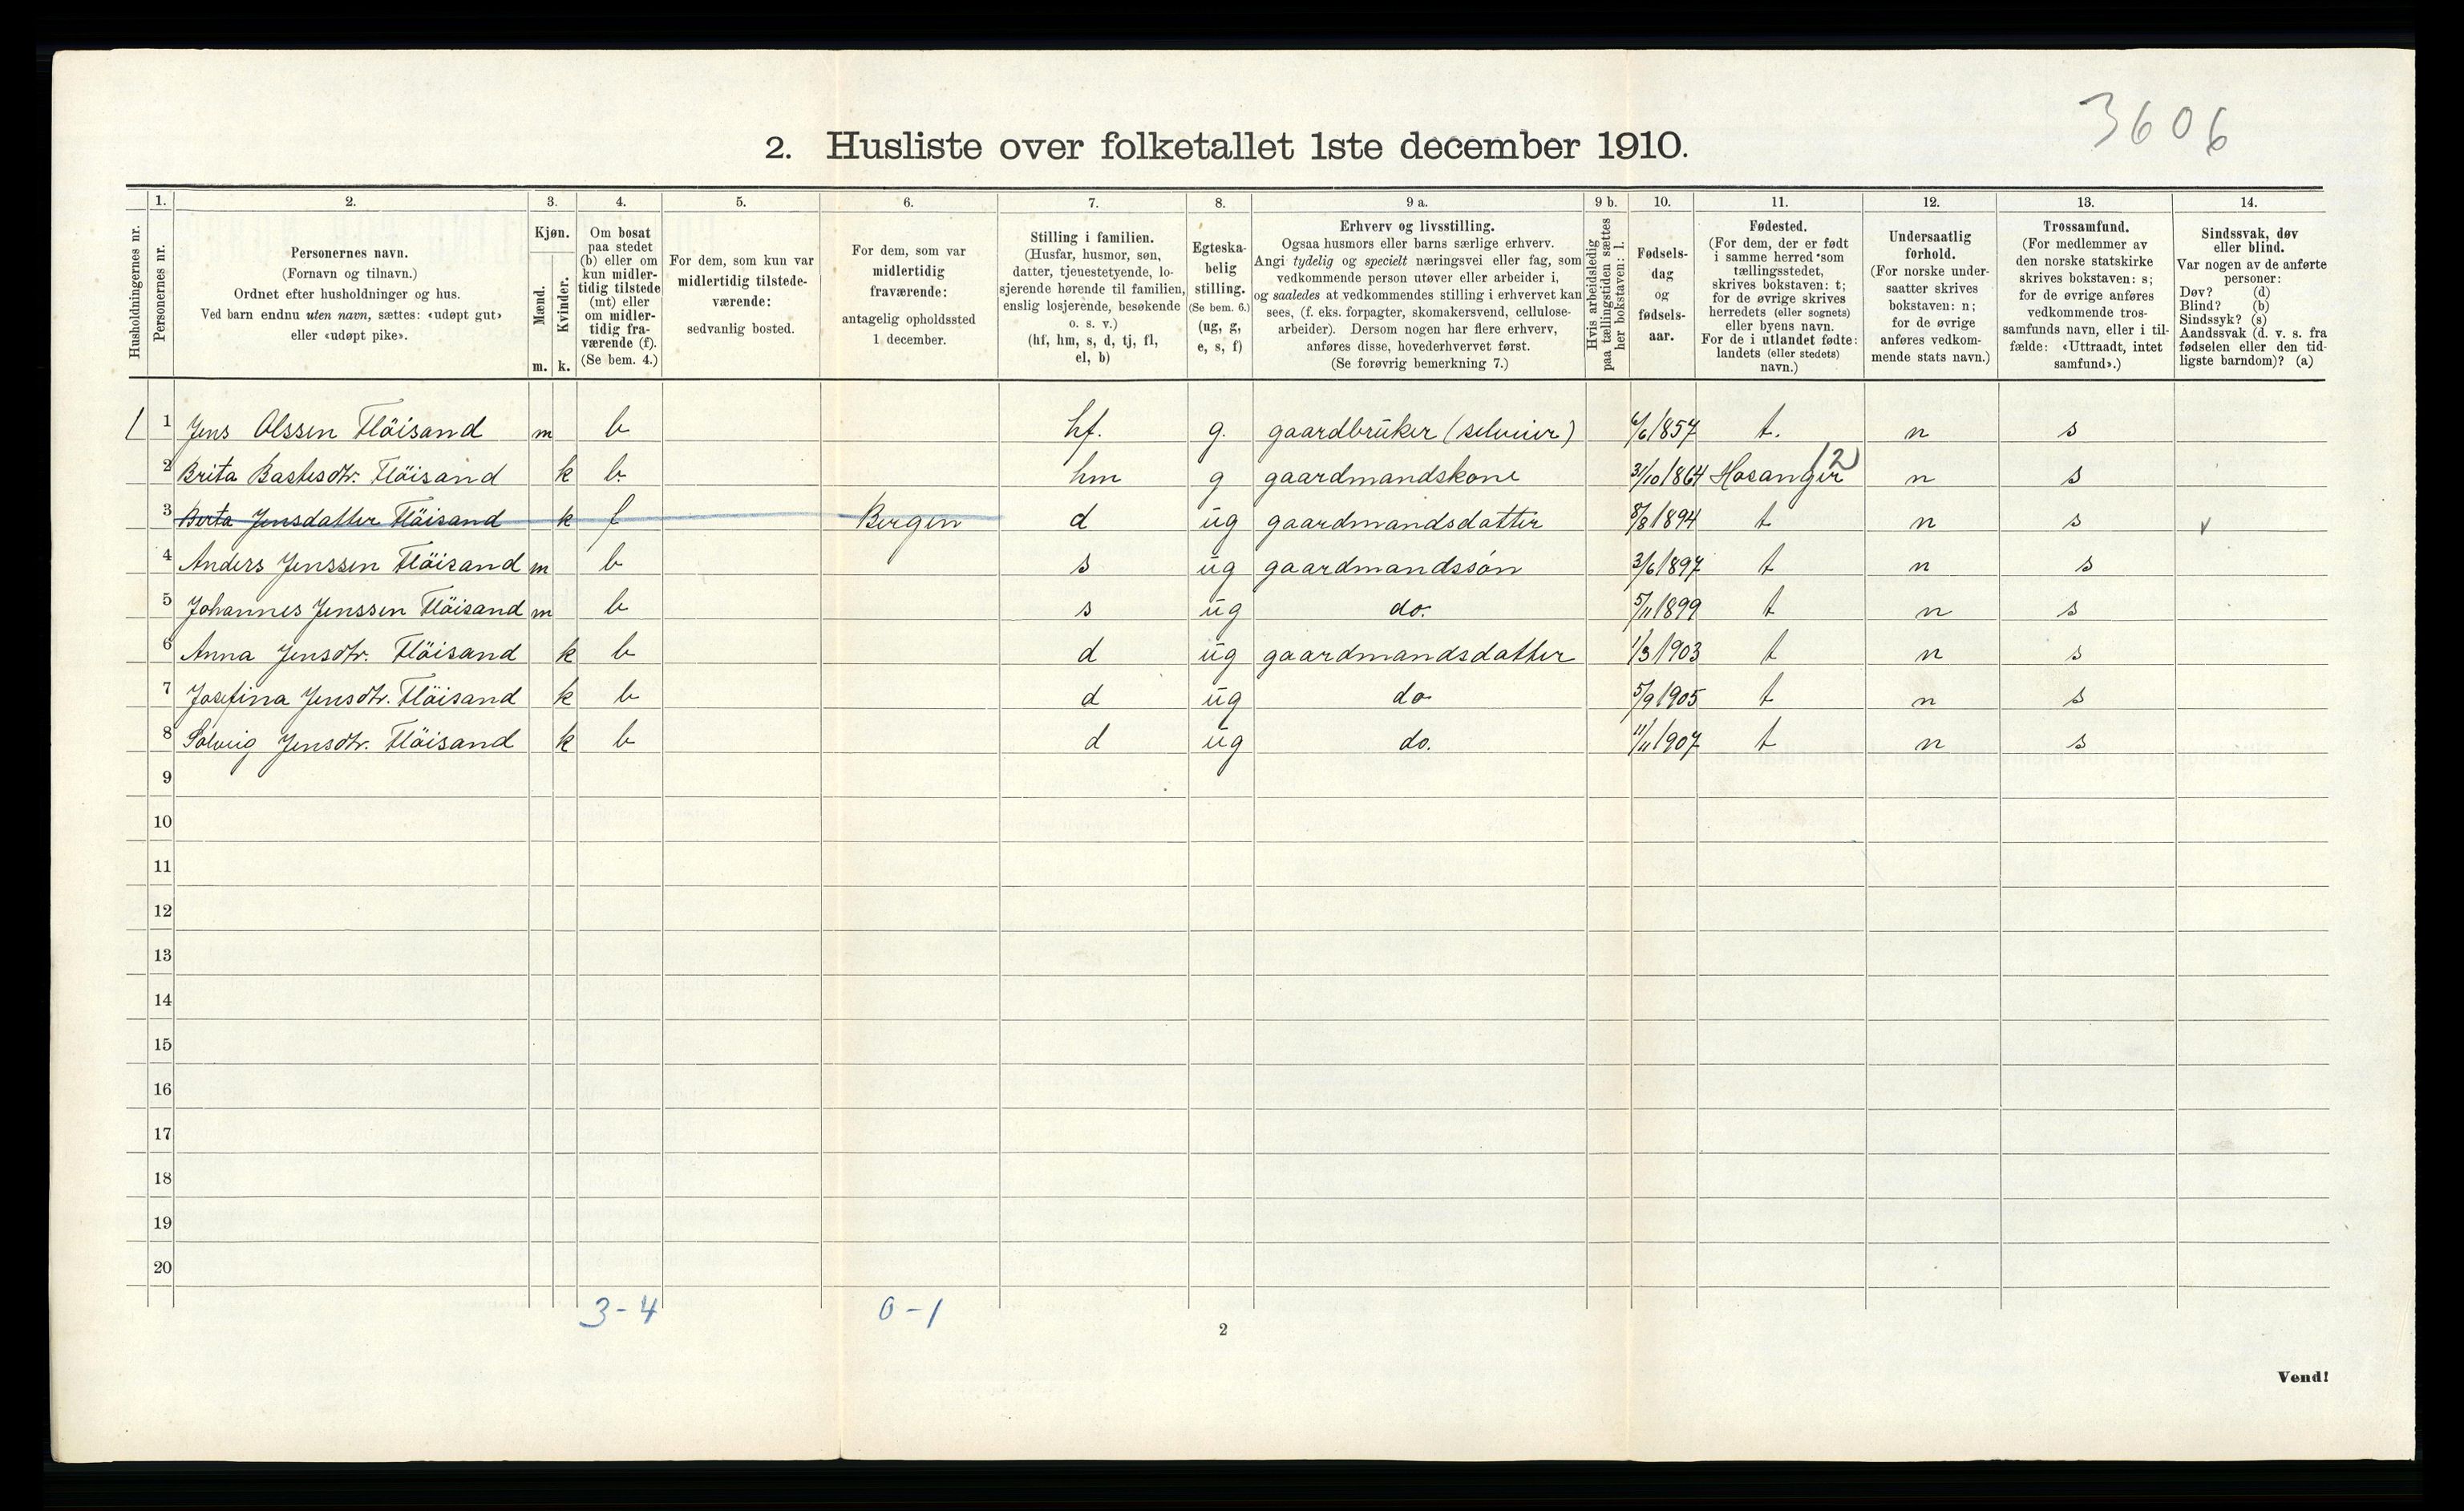 3606
2. Husliste over folketallet 1ste december 1910.
Husholdningernes nr.
1.
Personernes nr.
2.
Personernes navn.
(Fornavn og tilnavn.)
Ordnet efter husholdninger og hus.
Ved barn endnu uten navn, sættes: «udøpt gut»
eller «udøpt pike».
3.
Kjøn.
Mænd.
Kvinder.
m. k.
4.
Om bosat
paa stedet
(b) eller om
kun midler-
tidig tilstede
(mt) eller
om midler-
tidig fra-
værende (f).
(Se bem. 4.)
5.
For dem, som kun var
midlertidig tilstede-
værende:
sedvanlig bosted.
6.
For dem, som var
midlertidig
fraværende:
antagelig opholdssted
1 december.
7.
Stilling i familien.
(Husfar, husmor, søn,
datter, tjenestetyende, lo-
sjerende hørende til familien,
enslig losjerende, besøkende
o. s. v.)
(hf, hm, s, d, tj, fl,
el, b)
8.
Egteska-
belig
stilling.
(Se bem. 6.)
(ug, g,
e, s, f)
9 a.
Erhverv og livsstilling.
Ogsaa husmors eller barns særlige erhverv.
Angi tydelig og specielt næringsvei eller fag, som
vedkommende person utøver eller arbeider i,
og saaledes at vedkommendes stilling i erhvervet kan
sees, (f. eks. forpagter, skomakersvend, cellulose-
arbeider). Dersom nogen har flere erhverv,
anføres disse, hovederhvervet først.
(Se forøvrig bemerkning 7.)
9 b.
Hvis arbeidsledig
paa tællingstiden sættes
her bokstaven: l.
10.
Fødsels-
dag
og
fødsels-
aar.
11.
Fødested.
(For dem, der er født
i samme herred som
tællingsstedet,
skrives bokstaven: t;
for de øvrige skrives
herredets (eller sognets)
eller byens navn.
For de i utlandet fødte:
landets (eller stedets)
navn.)
12.
Undersaatlig
forhold.
(For norske under-
saatter skrives
bokstaven: n;
for de øvrige
anføres vedkom-
mende stats navn.)
13.
Trossamfund.
(For medlemmer av
den norske statskirke
skrives bokstaven: s;
for de øvrige anføres
vedkommende tros-
samfunds navn, eller i til-
fælde: «Uttraadt, intet
samfund».)
14.
Sindssvak, døv
eller blind.
Var nogen av de anførte
personer:
Døv? (d)
Blind? (b)
Sindssyk? (s)
Aandssvak (d. v. s. fra
fødselen eller den tid-
ligste barndom)? (a)
1 Jens Olssen Flöisand m b hf. g. gaardbruker (selveier) 6/6 1857 t. n s
2 Brita Bastesdtr. Flöisand k b. hm g gaardmandskone 31/10 1864 Hosanger 12 n s
3 Berta Jensdatter Flöisand k f Bergen d ug gaardmandsdatter 8/8 1894 t n s v
4 Anders Jenssen Flöisand m b s ug gaardmandssøn 3/6 1897 t n s
5 Johannes Jenssen Flöisand m b s ug do. 5/11 1899 t n s
6 Anna Jensdtr. Flöisand k b d ug gaardmandsdatter 1/3 1903 t n s
7 Josefina Jensdtr. Flöisand k b d ug do 5/9 1905 t n s
8 Solveig Jensdtr. Flöisand k b d ug do. 11/11 1907 t n s
9
10
11
12
13
14
15
16
17
18
19
20
3-4 0-1
2
Vend!